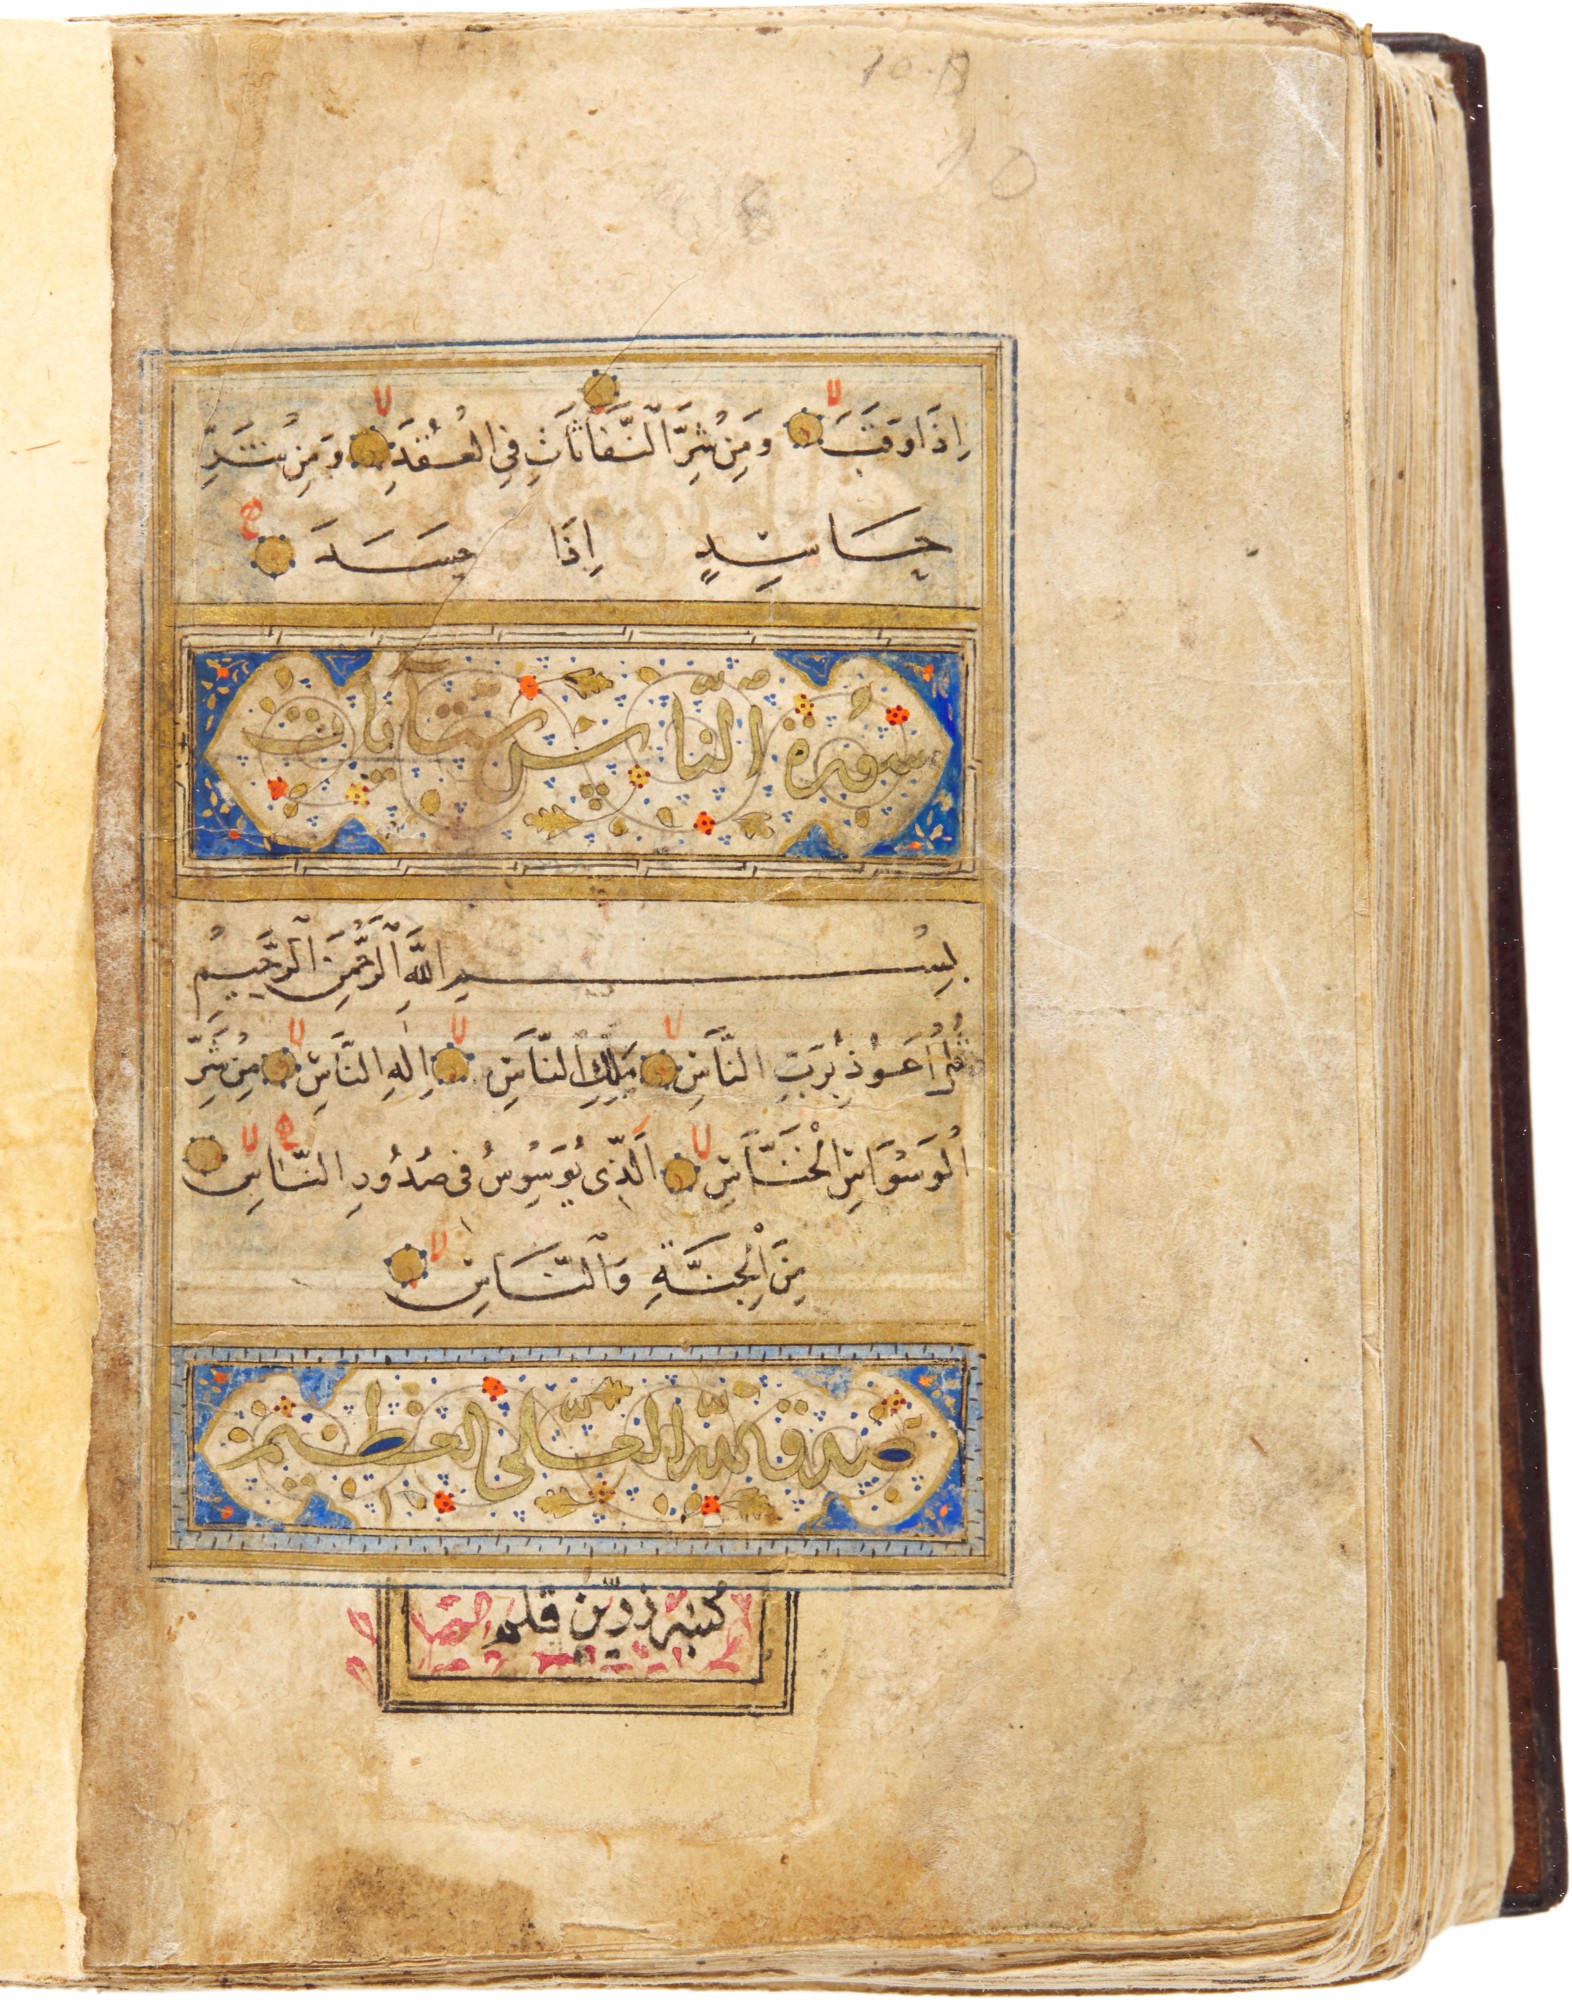 10
اِذَا وَقَبَ وَمِنْ شَرِّ النَّفَّاثَاتِ فِي الْعُقَدِ وَمِنْ شَرِّ
حَاسِدٍ اِذَا حَسَدَ
سُورَة النَّاس ست آيات
بِسْمِ اللّٰهِ الرَّحْمٰنِ الرَّحِيمِ
قُلْ اَعُوذُ بِرَبِّ النَّاسِ مَلِكِ النَّاسِ اِلٰهِ النَّاسِ مِنْ شَرِّ
الْوَسْوَاسِ الْخَنَّاسِ اَلَّذِى يُوَسْوِسُ فِى صُدُورِ النَّاسِ
مِنَ الْجِنَّةِ وَالنَّاسِ
صدق الله العلى العظيم
كتبه زرين قلم